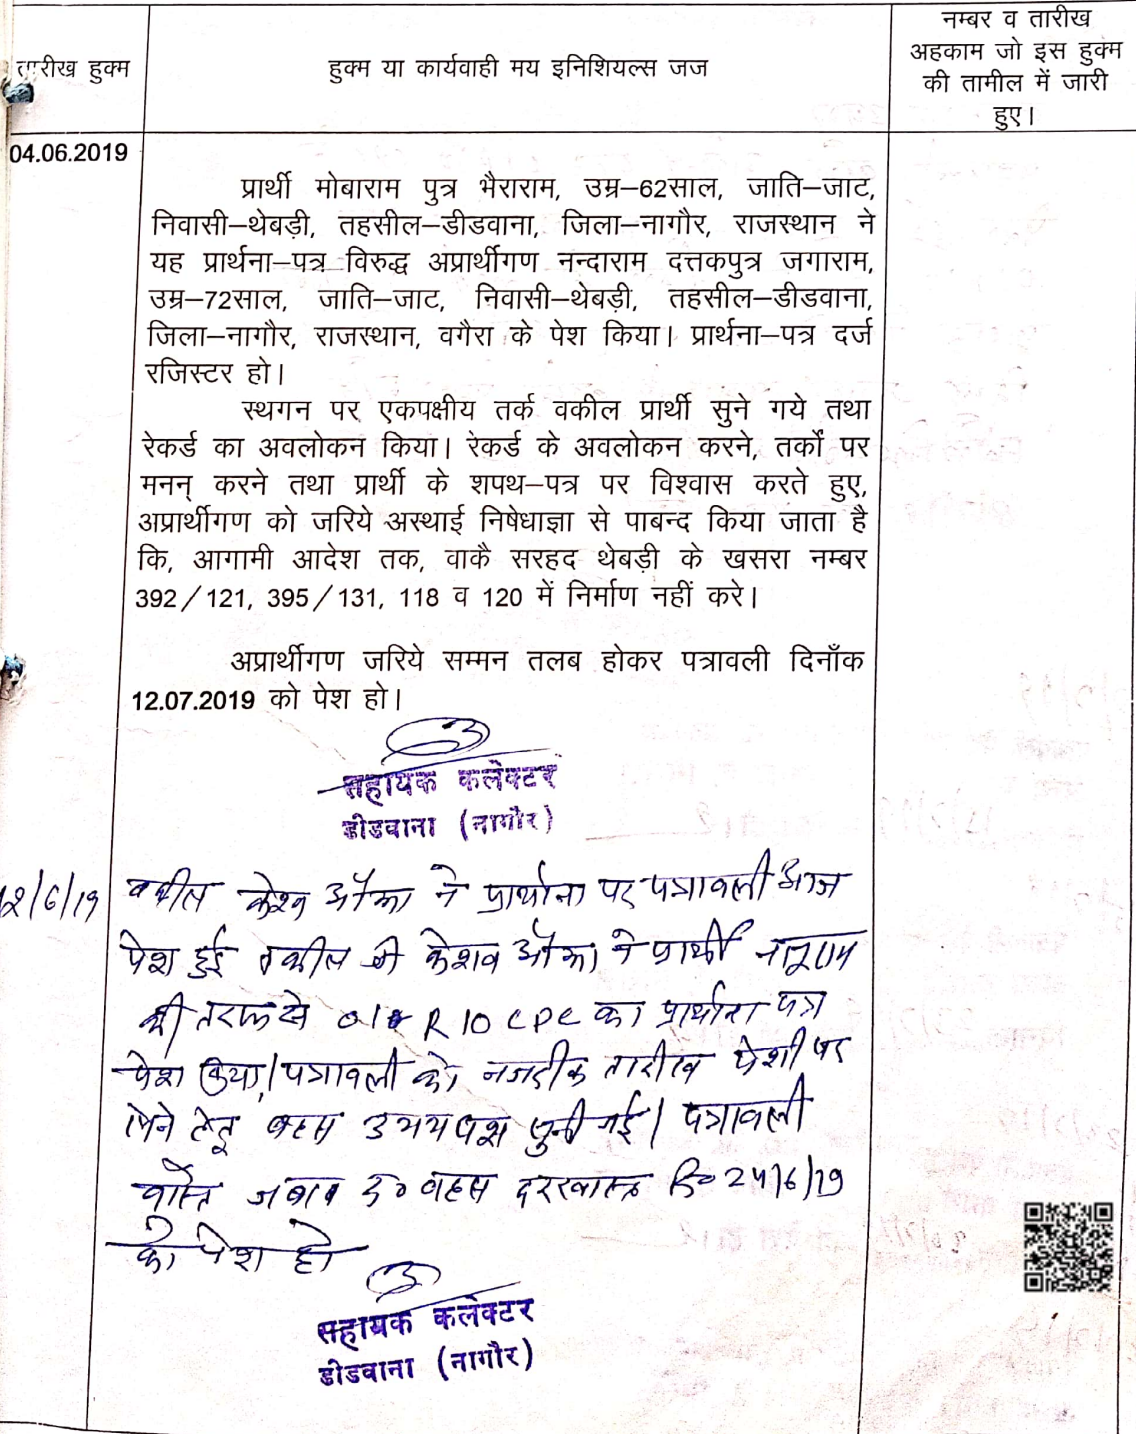 तारीख हुक्म
हुक्म या कार्यवाही मय इनिशियल्स जज
नम्बर व तारीख
अहकाम जो इस हुक्म
की तामील में जारी
हुए।
04.06.2019
प्रार्थी मोबाराम पुत्र भैराराम, उम्र–62साल, जाति–जाट,
निवासी–थेबड़ी, तहसील–डीडवाना, जिला–नागौर, राजस्थान ने
यह प्रार्थना–पत्र विरुद्ध अप्रार्थीगण नन्दाराम दत्तकपुत्र जगाराम,
उम्र–72साल, जाति–जाट, निवासी–थेबड़ी, तहसील–डीडवाना,
जिला–नागौर, राजस्थान, वगैरा के पेश किया। प्रार्थना–पत्र दर्ज
रजिस्टर हो।
स्थगन पर एकपक्षीय तर्क वकील प्रार्थी सुने गये तथा
रेकर्ड का अवलोकन किया। रेकर्ड के अवलोकन करने, तर्कों पर
मनन् करने तथा प्रार्थी के शपथ–पत्र पर विश्वास करते हुए,
अप्रार्थीगण को जरिये अस्थाई निषेधाज्ञा से पाबन्द किया जाता है
कि, आगामी आदेश तक, वाकै सरहद थेबड़ी के खसरा नम्बर
392/121, 395/131, 118 व 120 में निर्माण नहीं करे।
अप्रार्थीगण जरिये सम्मन तलब होकर पत्रावली दिनाँक
12.07.2019 को पेश हो।
सहायक कलेक्टर
डीडवाना (नागौर)
12/6/19 वकील केशव ओझा ने प्रार्थना पर पत्रावली आज
पेश हुई वकील श्री केशव ओझा ने प्रार्थी नानूराम
की तरफ से 01 R 10 CPC का प्रार्थना पत्र
पेश किया। पत्रावली को नजदीक तारीख पेशी पर
लेने हेतु बहस उभयपक्ष सुनी गई। पत्रावली
वास्ते जबाब व बहस दरखास्त दि० 24/6/19
को पेश हो
सहायक कलेक्टर
डीडवाना (नागौर)